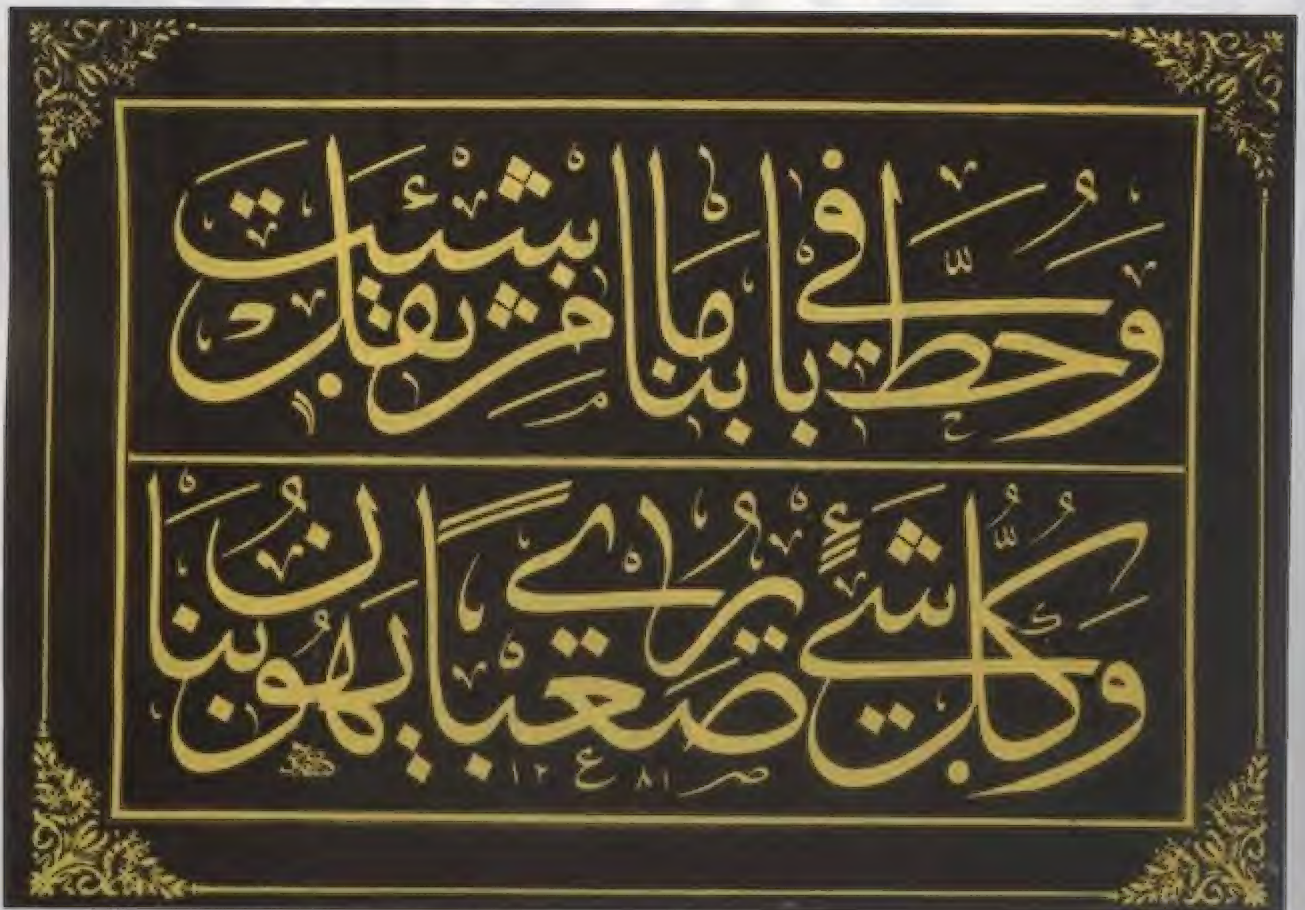 وَحُطَّ في بابنا ما شئت من ثقل
وَكُلُّ شئٍ يُرى صَعْباً يَهُونُ بنا
١٢٨١